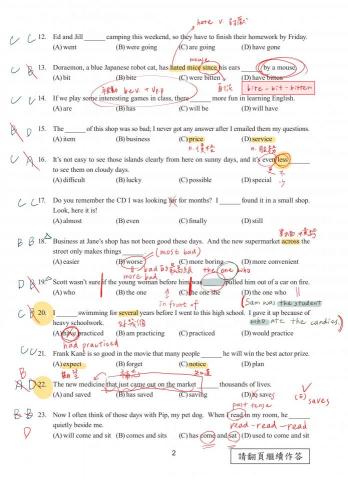 have v 的意
C C 12. Ed and Jill ______ camping this weekend, so they have to finish their homework by Friday.
(A) went (B) were going (C) are going (D) have gone
mouse
C 13. Doraemon, a blue Japanese robot cat, has hated mice since his ears ______ by a mouse.
(A) bit (B) bite (C) were bitten (D) have bitten
bev + Vpp
bite - bit - bitten
C C 14. If we play some interesting games in class, there ______ more fun in learning English.
(A) are (B) has (C) will be (D) will have
D 15. The ______ of this shop was so bad; I never got any answer after I emailed them my questions.
(A) item (B) business (C) price (D) service
n. 價格 n. 服務
C 16. It's not easy to see those islands clearly from here on sunny days, and it's even less ______
to see them on cloudy days.
(A) difficult (B) lucky (C) possible (D) special
C C 17. Do you remember the CD I was looking for for months? I ______ found it in a small shop.
Look, here it is!
(A) almost (B) even (C) finally (D) still
B B 18. Business at Jane's shop has not been good these days. And the new supermarket across the
street only makes things ______.
(most bad)
(A) easier (B) worse (C) more boring (D) more convenient
more bad
the one who
D 19. Scott wasn't sure if the young woman before him was ______ pulled him out of a car on fire.
(A) who (B) the one (C) the one she (D) the one who
in front of
Sam was the student
who ate the candies.
C 20. I ______ swimming for several years before I went to this high school. I gave it up because of
heavy schoolwork.
(A) have practiced (B) am practicing (C) practiced (D) would practice
had practiced
C C 21. Frank Kane is so good in the movie that many people ______ he will win the best actor prize.
(A) expect (B) forget (C) notice (D) plan
D 22. The new medicine that just came out on the market ______ thousands of lives.
(A) and saved (B) has saved (C) saving (D) to saves
(E) saves
past tense
B B 23. Now I often think of those days with Pip, my pet dog. When I read in my room, he ______
quietly beside me.
read - read - read
D
(A) will come and sit (B) comes and sits (C) has come and sat (D) used to come and sit
2
請翻頁繼續作答